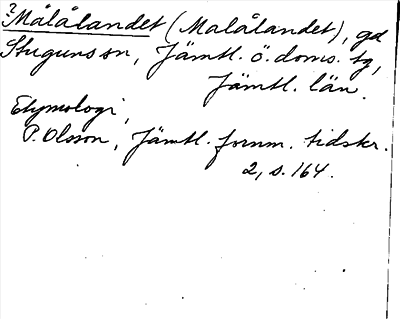 ?Målålandet (Malålandet), gd
Stuguns sn, Jämtl. ö. doms. tg,
Jämtl. län.
Etymologi,
P. Olsson, Jämtl. fornm. tidskr.
2, s. 164.